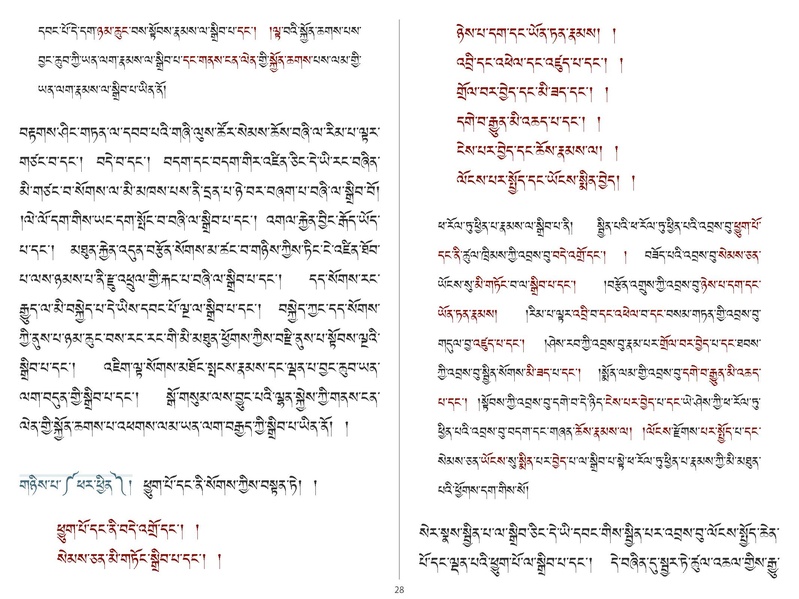 དབང་པོ་དེ་དག་ཉམ་ཆུང་བས་སྟོབས་རྣམས་ལ་སྒྲིབ་པ་དང་། །ལྟ་བའི་སྐྱོན་ཆགས་པས་
བྱང་ཆུབ་ཀྱི་ཡན་ལག་རྣམས་ལ་སྒྲིབ་པ་དང་གནས་ངན་ལེན་གྱི་སྐྱོན་ཆགས་པས་ལམ་གྱི་
ཡན་ལག་རྣམས་ལ་སྒྲིབ་པ་ཡིན་ནོ།
བརྟགས་ཤིང་གཏན་ལ་དབབ་པའི་གཞི་ལུས་ཚོར་སེམས་ཆོས་བཞི་ལ་རིམ་པ་ལྟར་
གཙང་བ་དང་། བདེ་བ་དང་། བདག་དང་བདག་གིར་འཛིན་ཅིང་དེ་ཡི་རང་བཞིན་
མི་གཙང་བ་སོགས་ལ་མི་མཁས་པས་ནི་དྲན་པ་ཉེ་བར་བཞག་པ་བཞི་ལ་སྒྲིབ་བོ།
།ལེ་ལོ་དག་གིས་ཡང་དག་སྤོང་བ་བཞི་ལ་སྒྲིབ་པ་དང་། འགལ་རྐྱེན་བྱིང་རྒོད་ཡོད་
པ་དང་། མཐུན་རྐྱེན་འདུན་བརྩོན་སོགས་མ་ཚང་བ་གཉིས་ཀྱིས་ཏིང་ངེ་འཛིན་ཐོབ་
པ་ལས་ཉམས་པ་ནི་རྫུ་འཕྲུལ་གྱི་རྐང་པ་བཞི་ལ་སྒྲིབ་པ་དང་། དད་སོགས་རང་
རྒྱུད་ལ་མི་བསྐྱེད་པ་དེ་ཡིས་དབང་པོ་ལྔ་ལ་སྒྲིབ་པ་དང་། བསྐྱེད་ཀྱང་དད་སོགས་
ཀྱི་ནུས་པ་ཉམ་ཆུང་བས་རང་རང་གི་མི་མཐུན་ཕྱོགས་ཀྱིས་བརྫི་ནུས་པ་སྟོབས་ལྔའི་
སྒྲིབ་པ་དང་། འཇིག་ལྟ་སོགས་མཐོང་སྤངས་རྣམས་དང་ལྡན་པ་བྱང་ཆུབ་ཡན་
ལག་བདུན་གྱི་སྒྲིབ་པ་དང་། སྒོ་གསུམ་ལས་བྱུང་བའི་ལྷན་སྐྱེས་ཀྱི་གནས་ངན་
ལེན་གྱི་སྐྱོན་ཆགས་པ་འཕགས་ལམ་ཡན་ལག་བརྒྱད་ཀྱི་སྒྲིབ་པ་ཡིན་ནོ། །
གཉིས་པ་༼ཕར་ཕྱིན༽། ཕྱུག་པོ་དང་ནི་སོགས་ཀྱིས་བསྟན་ཏེ། །
ཕྱུག་པོ་དང་ནི་བདེ་འགྲོ་དང་། །
སེམས་ཅན་མི་གཏོང་སྒྲིབ་པ་དང་། །
ཉེས་པ་དག་དང་ཡོན་ཏན་རྣམས། །
འབྲི་དང་འཕེལ་དང་འཛུད་པ་དང་། །
གྲོལ་བར་བྱེད་དང་མི་ཟད་དང་། །
དགེ་བ་རྒྱུན་མི་འཆད་པ་དང་། །
ངེས་པར་བྱེད་དང་ཆོས་རྣམས་ལ། །
ལོངས་པར་སྤྱོད་དང་ཡོངས་སྨིན་བྱེད། །
ཕ་རོལ་ཏུ་ཕྱིན་པ་རྣམས་ལ་སྒྲིབ་པ་ནི། སྦྱིན་པའི་ཕ་རོལ་ཏུ་ཕྱིན་པའི་འབྲས་བུ་ཕྱུག་པོ་
དང་ནི་ཚུལ་ཁྲིམས་ཀྱི་འབྲས་བུ་བདེ་འགྲོ་དང་། ། བཟོད་པའི་འབྲས་བུ་སེམས་ཅན་
ཡོངས་སུ་མི་གཏོང་བ་ལ་སྒྲིབ་པ་དང་། །བརྩོན་འགྲུས་ཀྱི་འབྲས་བུ་ཉེས་པ་དག་དང་
ཡོན་ཏན་རྣམས། །རིམ་པ་ལྟར་འབྲི་བ་དང་འཕེལ་བ་དང་བསམ་གཏན་གྱི་འབྲས་བུ་
གདུལ་བྱ་འཛུད་པ་དང་། །ཤེས་རབ་ཀྱི་འབྲས་བུ་རྣམ་པར་གྲོལ་བར་བྱེད་པ་དང་ཐབས་
ཀྱི་འབྲས་བུ་སྦྱིན་སོགས་མི་ཟད་པ་དང་། །སྨོན་ལམ་གྱི་འབྲས་བུ་དགེ་བ་རྒྱུན་མི་འཆད་
པ་དང་། །སྟོབས་ཀྱི་འབྲས་བུ་དགེ་བ་དེ་ཉིད་ངེས་པར་བྱེད་པ་དང་ཡེ་ཤེས་ཀྱི་ཕ་རོལ་ཏུ་
ཕྱིན་པའི་འབྲས་བུ་བདག་དང་གཞན་ཆོས་རྣམས་ལ། །ལོངས་རྫོགས་པར་སྤྱོད་པ་དང་
སེམས་ཅན་ཡོངས་སུ་སྨིན་པར་བྱེད་པ་ལ་སྒྲིབ་པ་སྟེ་ཕ་རོལ་ཏུ་ཕྱིན་པ་རྣམས་ཀྱི་མི་མཐུན་
པའི་ཕྱོགས་དག་གིས་སོ།
སེར་སྣས་སྦྱིན་པ་ལ་སྒྲིབ་ཅིང་དེ་ཡི་དབང་གིས་སྦྱིན་པར་འབྲས་བུ་ལོངས་སྤྱོད་ཆེན་
པོ་དང་ལྡན་པའི་ཕྱུག་པོ་ལ་སྒྲིབ་པ་དང་། དེ་བཞིན་དུ་སྦྱར་ཏེ་ཚུལ་འཆལ་གྱིས་རྒྱུ་
28